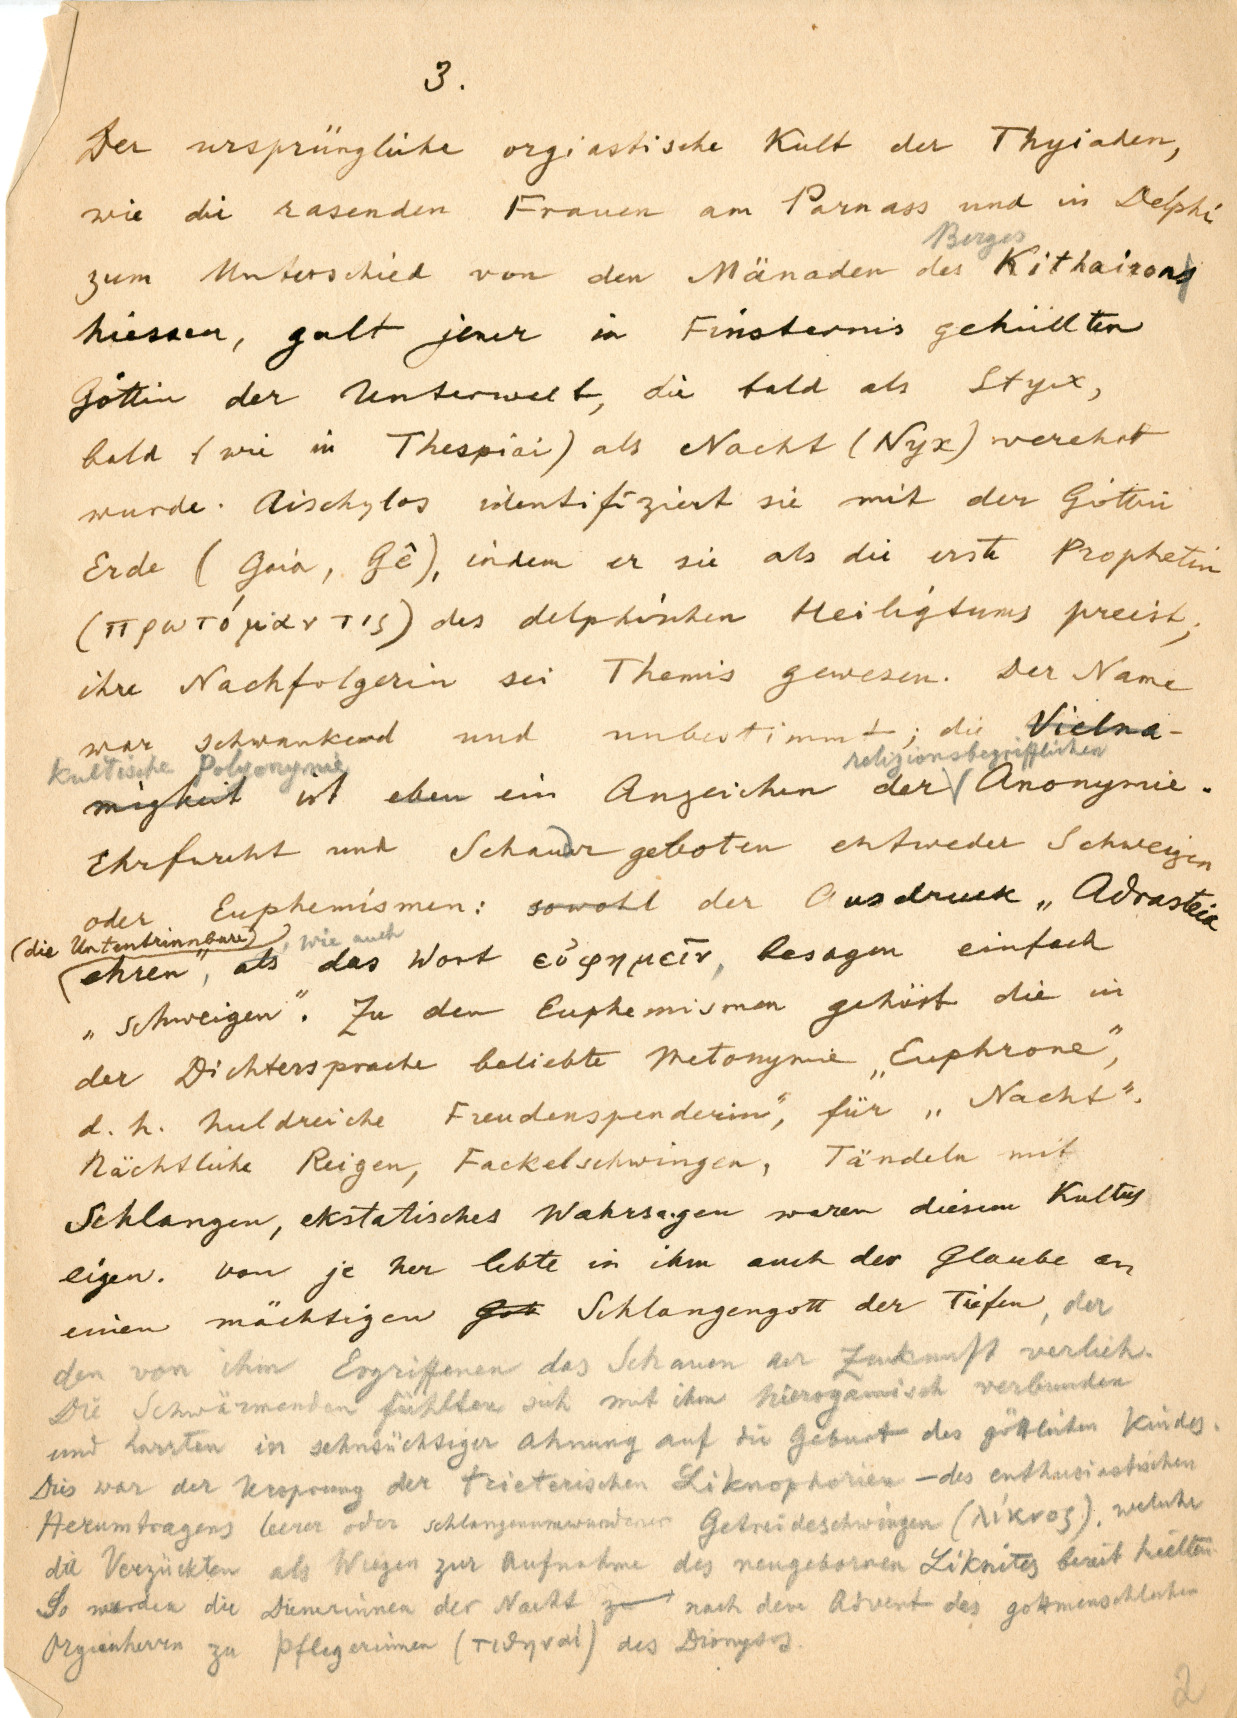 3.
Der ursprüngliche orgiastische Kult der Thyiaden,
wie die rasenden Frauen am Parnass und in Delphi
Berges
zum Unterschied von den Mänaden des Kithairons
hiessen, galt jener in Finsternis gehüllten
Göttin der Unterwelt, die bald als Styx,
bald (wie in Thespiai) als Nacht (Nyx) verehrt
wurde. Aischylos identifiziert sie mit der Göttin
Erde (Gaia, Gê), indem er sie als die erste Prophetin
(πρωτόμαντις) des delphischen Heiligtums preist;
ihre Nachfolgerin sei Themis gewesen. Der Name
war schwankend und unbestimmt; die Vielna-
kultische Polyonymie religionsbegrifflichen
migkeit ist eben ein Anzeichen der Anonymie.
Ehrfurcht und Schauer geboten entweder Schweigen
oder Euphemismen: sowohl der Ausdruck „Adrasteia
(die Unentrinnbare) , wie auch
ehren", als das Wort εὐφημεῖν, besagen einfach
„schweigen". Zu den Euphemismen gehört die in
der Dichtersprache beliebte Metonymie „Euphrone",
d. h. huldreiche Freudenspenderin", für „Nacht".
Nächtliche Reigen, Fackelschwingen, Tändeln mit
Schlangen, ekstatisches Wahrsagen waren diesem Kultus
eigen. Von je her lebte in ihm auch der Glaube an
einen mächtigen Got Schlangengott der Tiefen, der
den von ihm Ergriffenen das Schauen der Zukunft verlieh.
Die Schwärmenden fühlten sich mit ihm hierogamisch verbunden
und harrten in sehnsüchtiger Ahnung auf die Geburt des göttlichen Kindes.
Dies war der Ursprung der trieterischen Liknophorien – des enthusiastischen
Herumtragens leerer oder schlangenumwundener Getreideschwingen (λίκνος), welche
die Verzückten als Wiegen zur Aufnahme des neugebornen Liknites bereit hielten.
So werden die Dienerinnen der Nacht zu nach dem Advent des gottmenschlichen
Orgienherrn zu Pflegerinnen (τιθηναί) des Dionysos.
2